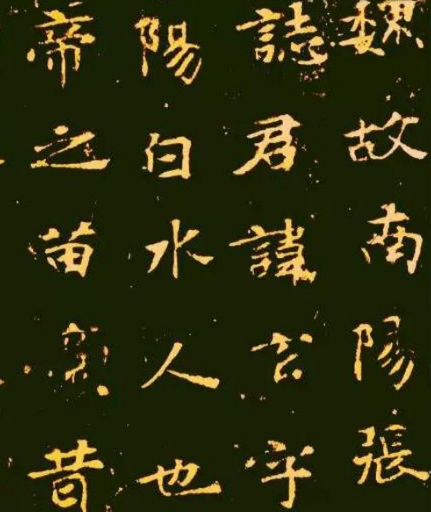 魏故南陽張
誌君諱玄字
陽白水人也
帝之苗裔昔